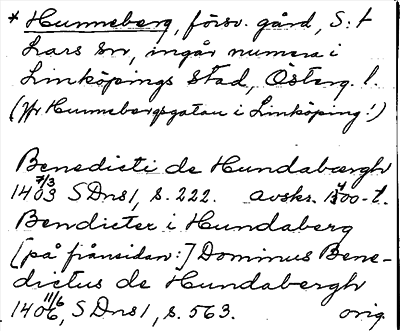 * Hunneberg, försv. gård, S:t
Lars sn, ingår numera i
Linköpings stad, Österg. l.
(Jfr Hunnebergsgatan i Linköping!)
Benedicti de Hundabærgh
1403 7/3 SDns 1, s. 222. avskr. 1500-t.
Bendicter i Hundaberg
[på frånsidan:] Dominus Bene-
dictus de Hundabergh
1406 11/6, SDns 1, s. 563. orig.